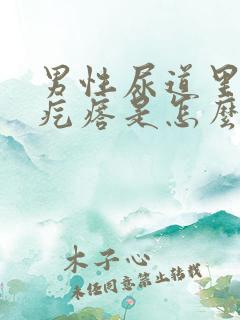 男性尿道里
疙瘩是怎麼
木子心
未经同意禁止转载